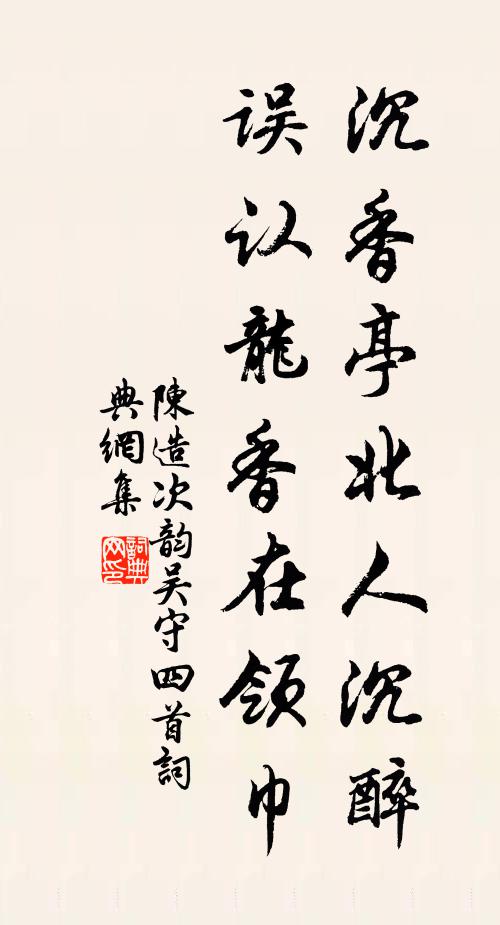 沉香亭北人沉醉
误认龍香在领巾
陳造次韵吴守四首詞
典網集
詞典网印